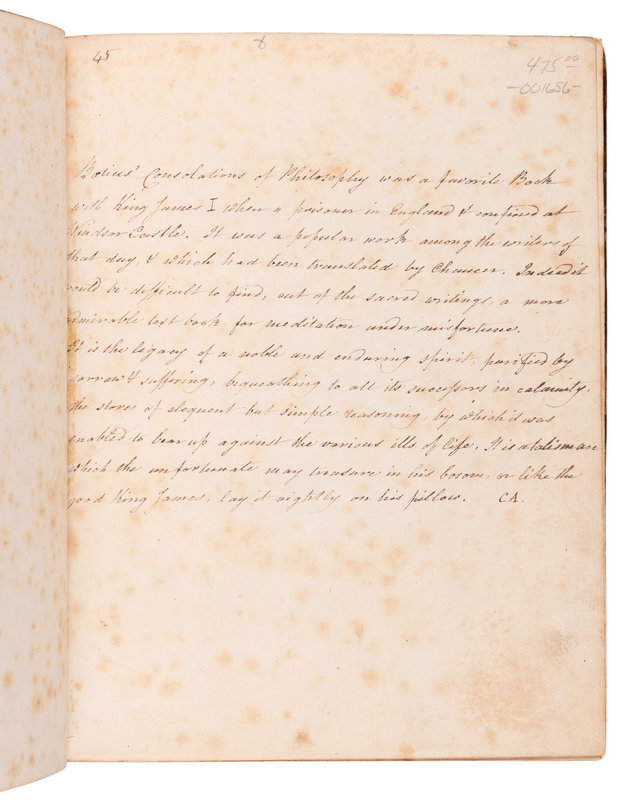 45
475 00
-001656-
Boetius' Consolations of Philosophy was a favorite Book
with King James I when a prisoner in England & confined at
Windsor Castle. It was a popular work among the writers of
that day, & which had been translated by Chaucer. Indeed it
would be difficult to find, out of the sacred writings, a more
admirable text book for meditation under misfortune.
It is the legacy of a noble and enduring spirit, purified by
sorrow & suffering, bequeathing to all its successors in calamity,
the stores of eloquent but simple reasoning, by which it was
enabled to bear up against the various ills of life. It is a talisman
which the unfortunate may treasure in his bosom, or like the
good King James, lay it nightly on his pillow. CA.